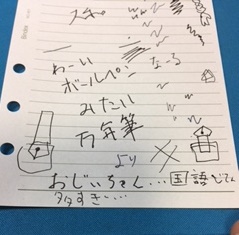 わーい
なーる
ボールペン
みたい
万年筆
より
おじいちゃん…国語じてん
多すぎ…